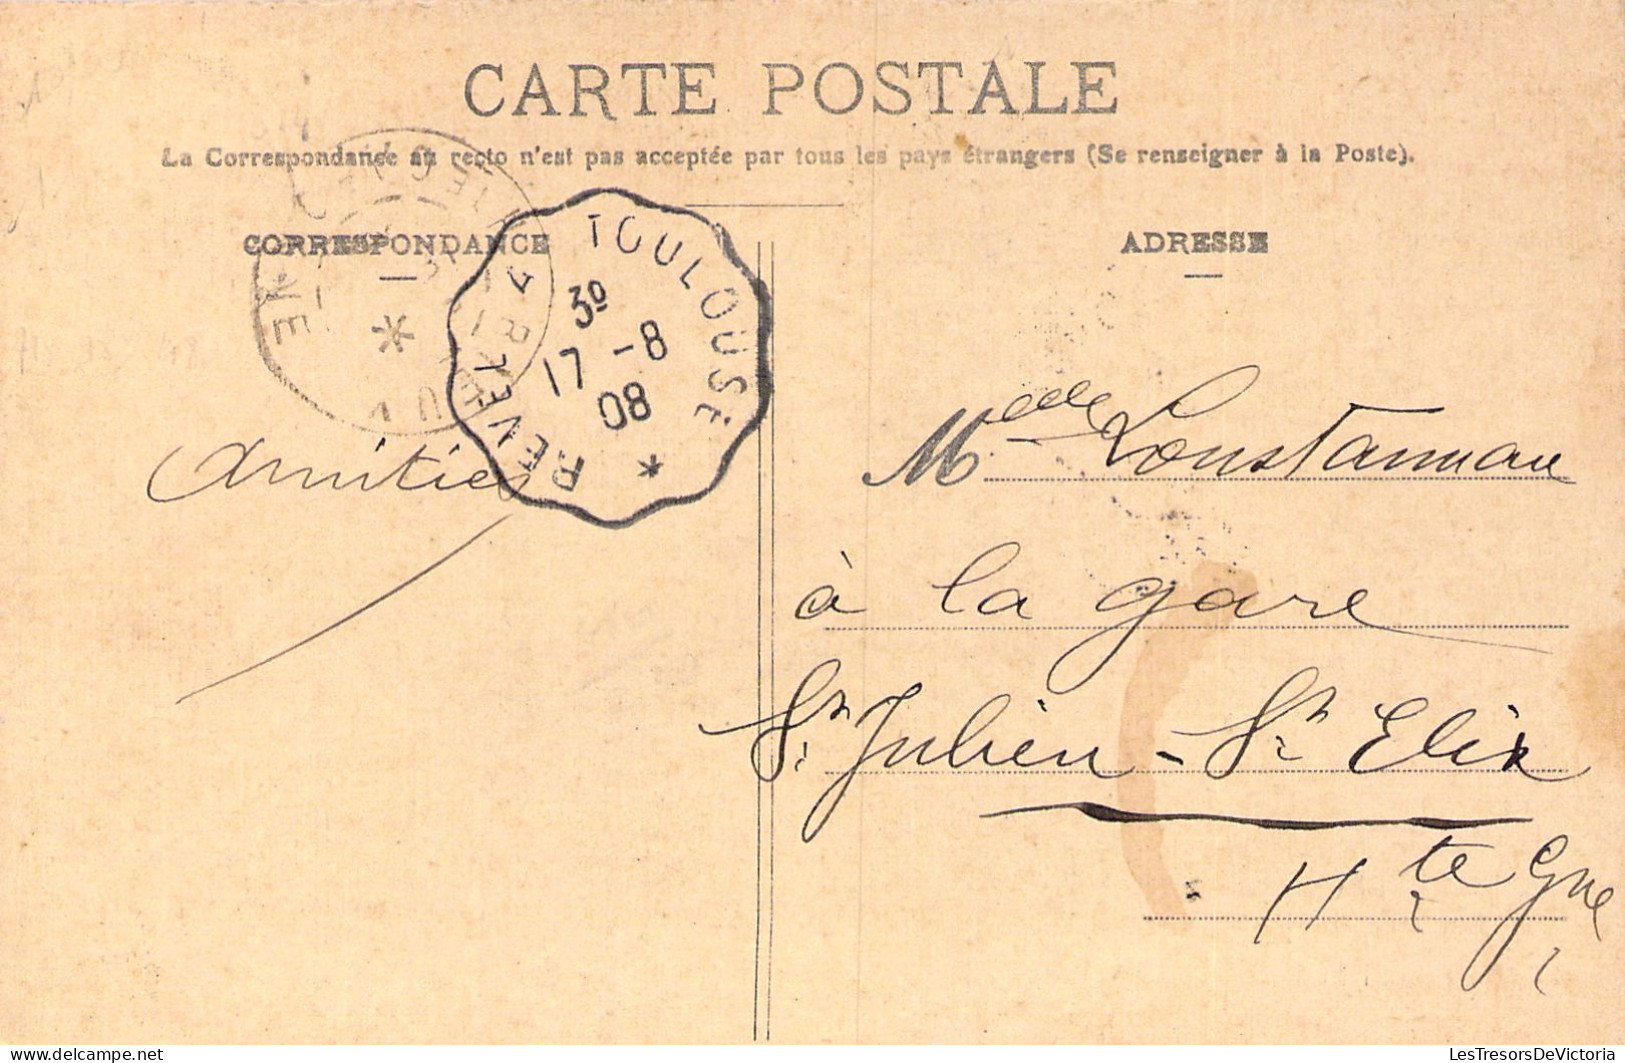 CARTE POSTALE
La Correspondance au recto n'est pas acceptée par tous les pays étrangers (Se renseigner à la Poste).
CORRESPONDANCE
ADRESSE
REVEL A TOULOUSE
3º
17 -8
08
*
*
Amitiés
Melle Loustannau
à la gare
St Julien - St Elix
Hte Gne
LesTresorsDeVictoria